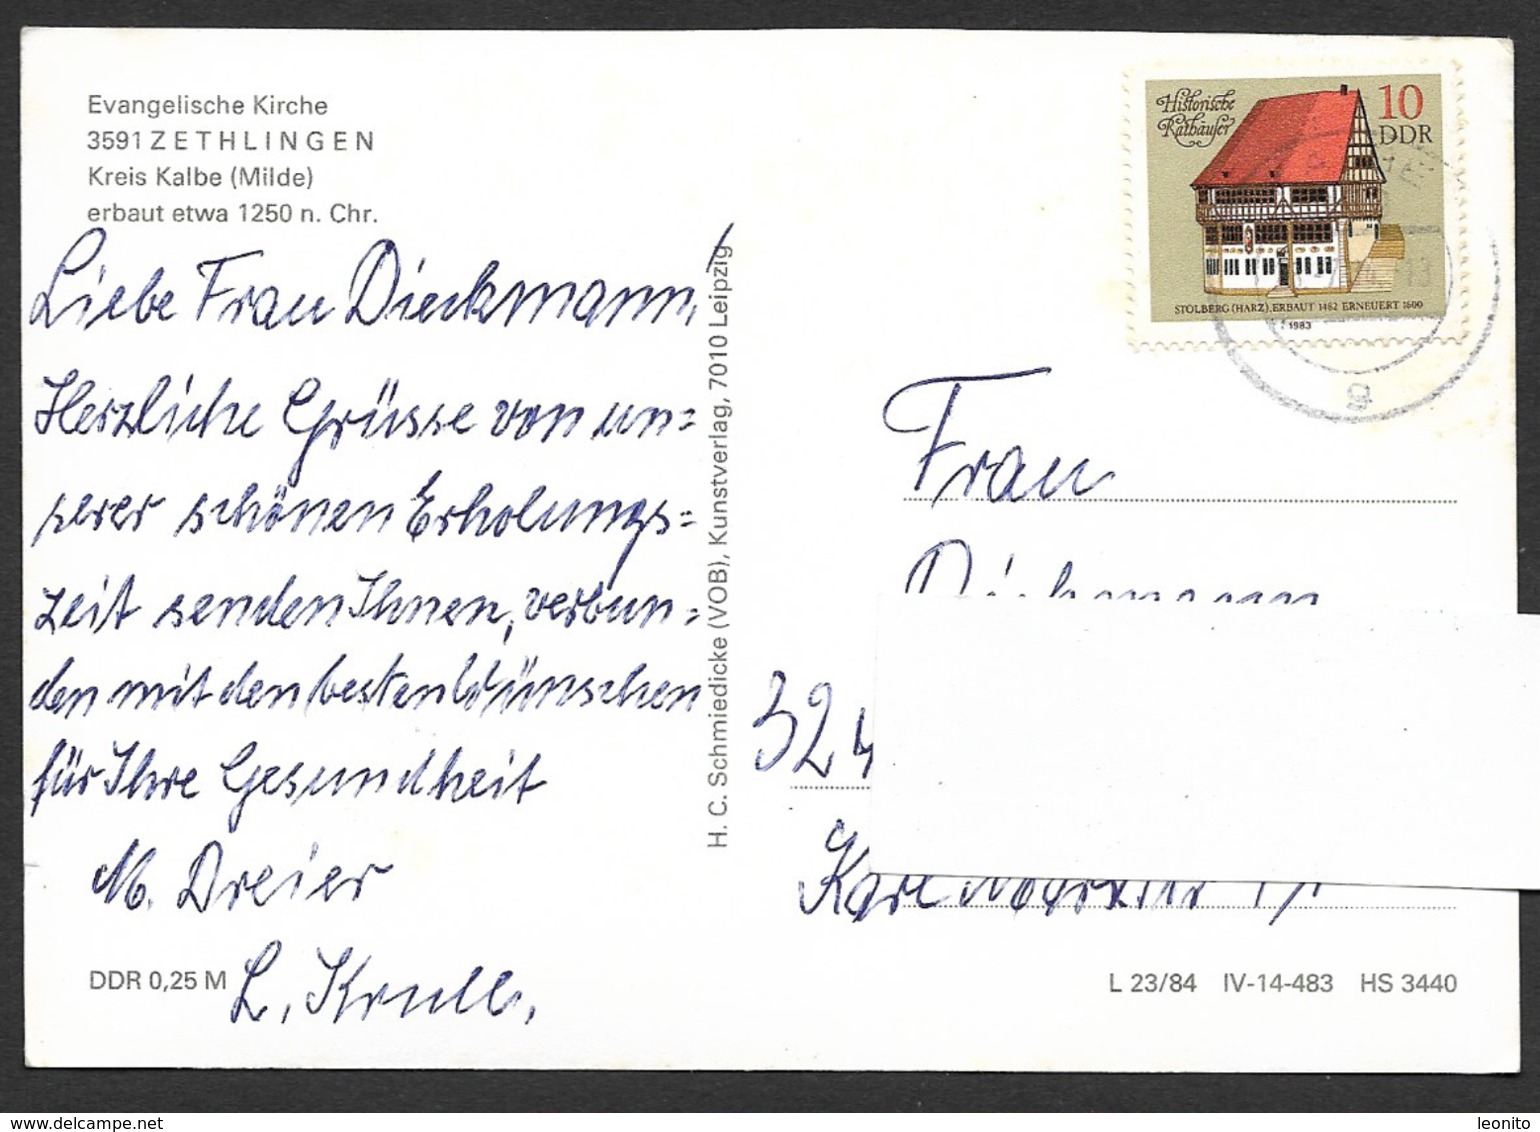 Evangelische Kirche
3591 ZETHLINGEN
Kreis Kalbe (Milde)
erbaut etwa 1250 n. Chr.
Liebe Frau Dieckmann,
Herzliche Grüsse von un=
serer schönen Erholungs=
zeit senden Ihnen, verbun=
den mit den besten Wünschen
für Ihre Gesundheit
M. Dreier
L. Krull.
DDR 0,25 M
H. C. Schmiedicke (VOB), Kunstverlag, 7010 Leipzig
Historische
Rathäuser
10
DDR
STOLBERG (HARZ), ERBAUT 1482 ERNEUERT 1600
1983
g
Frau
324
Karl
L 23/84 IV-14-483 HS 3440
leonito